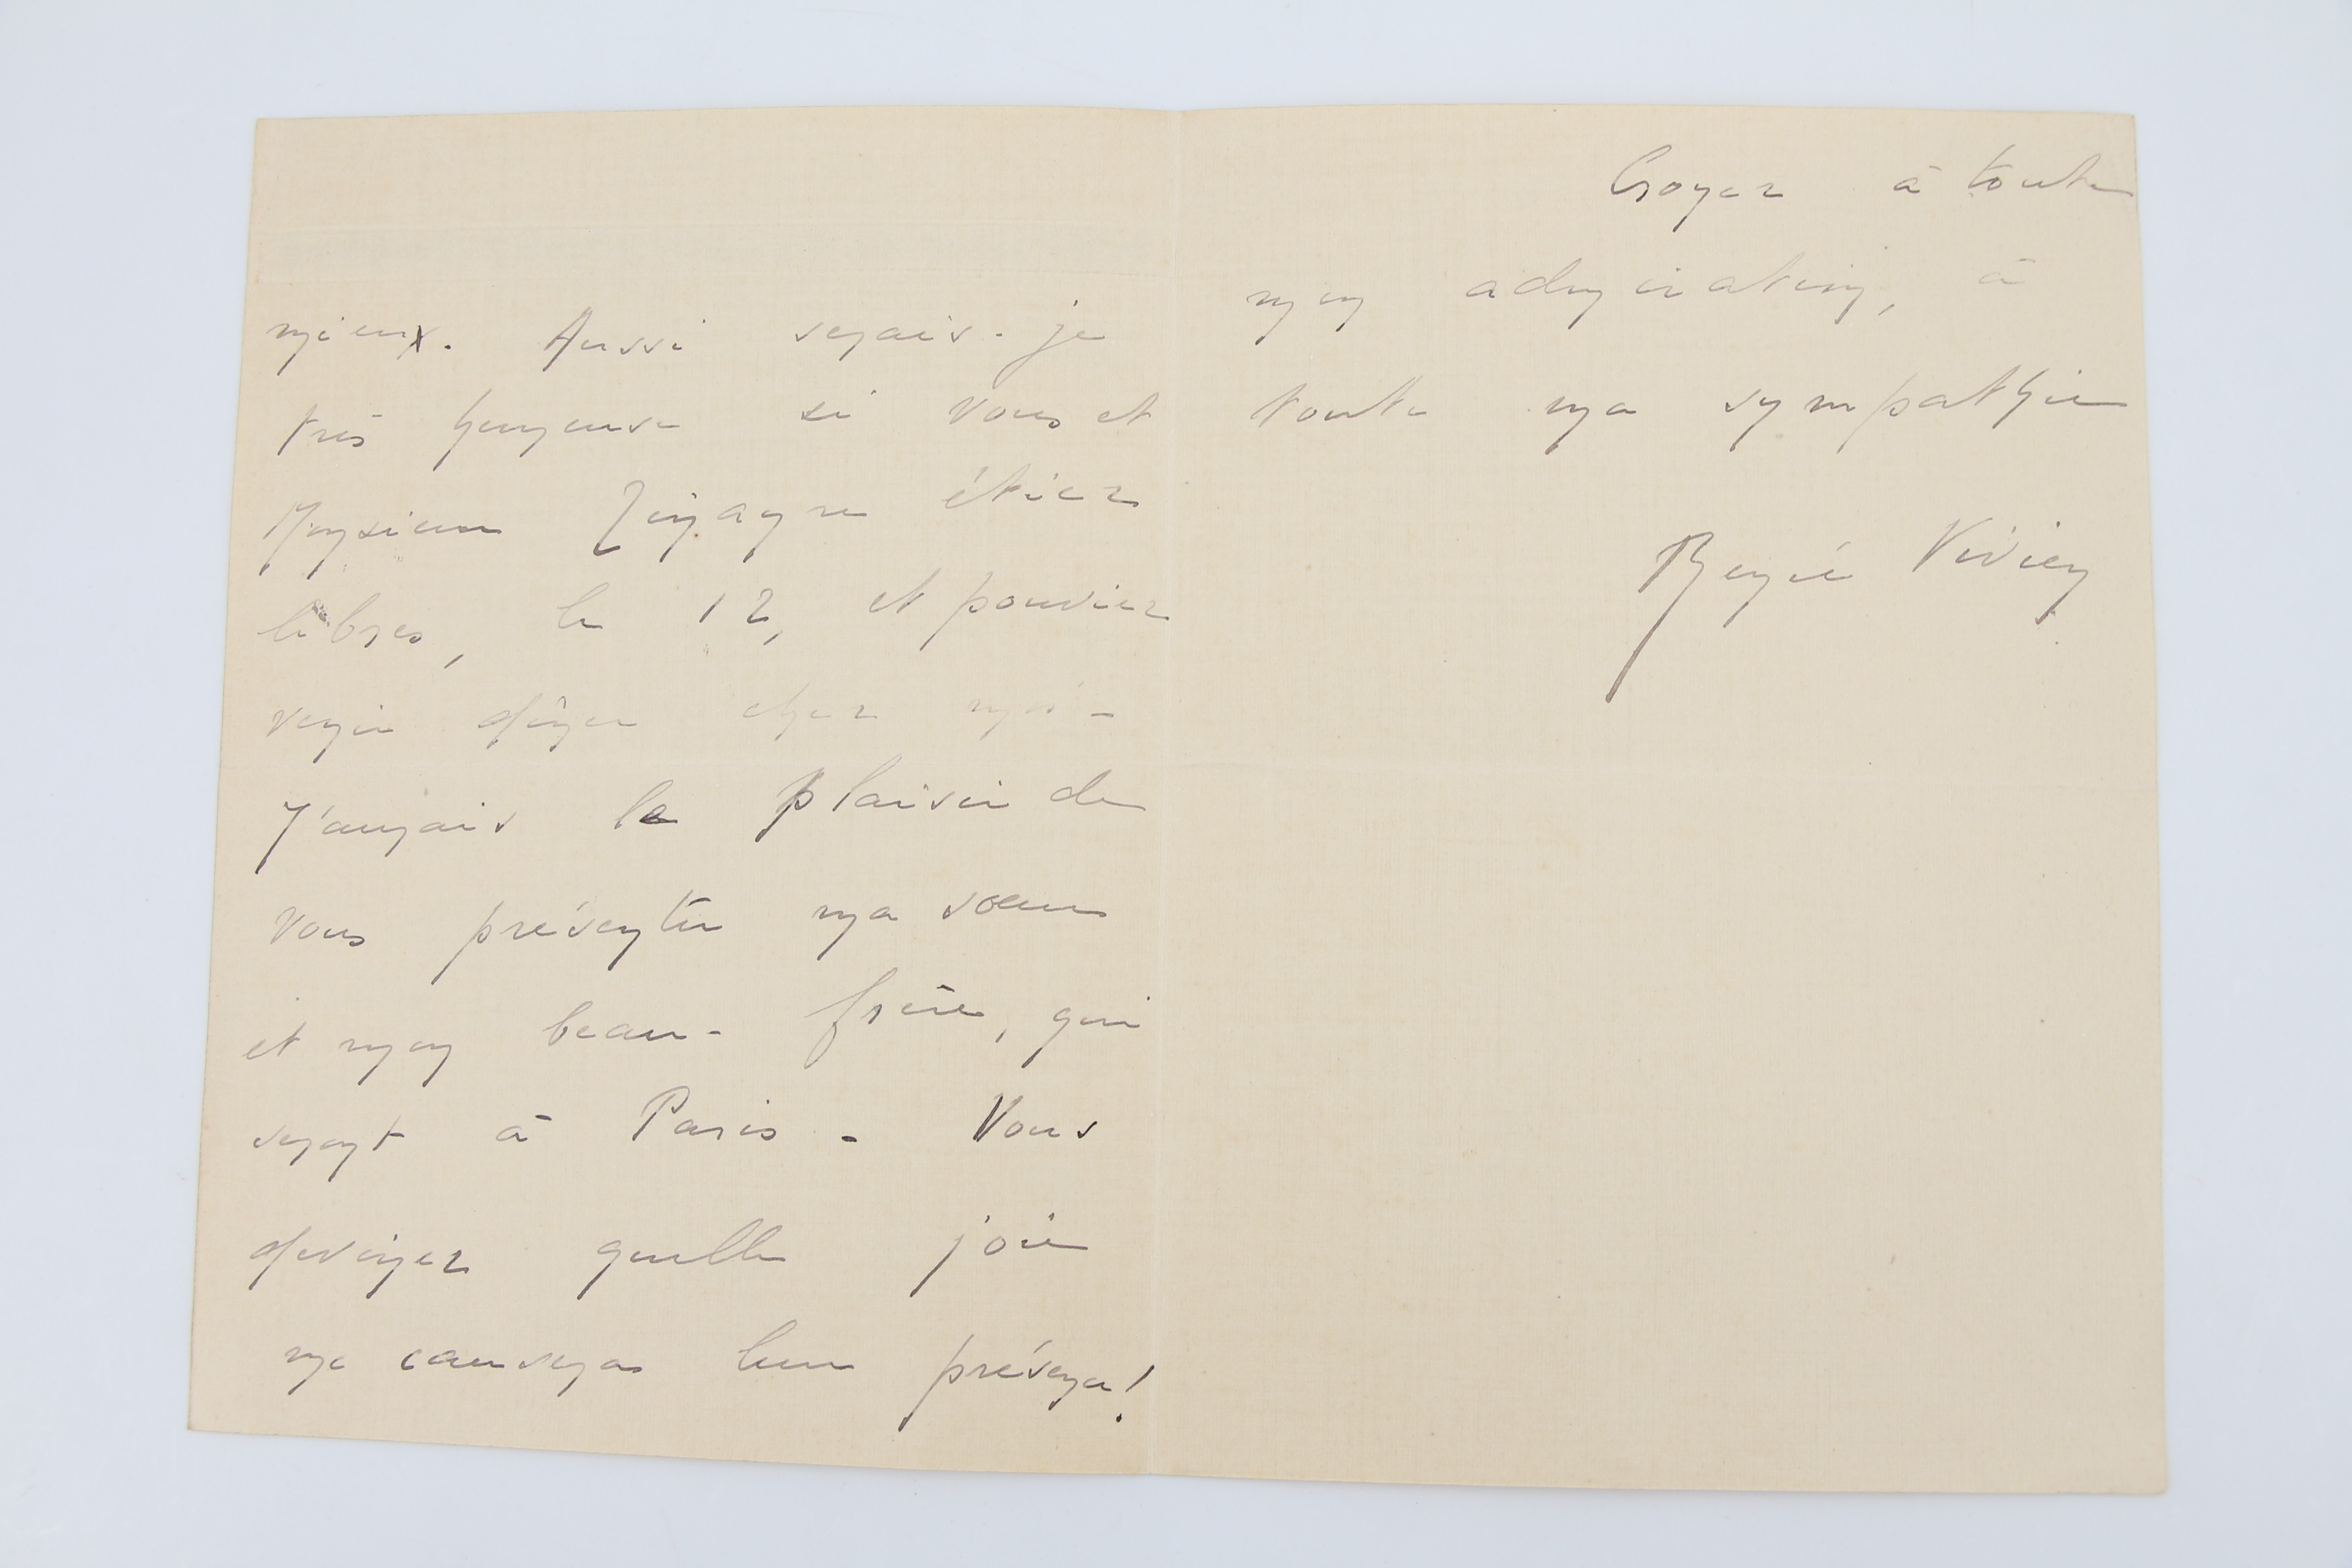 mieux. Aussi serais-je
très heureuse si vous et
Monsieur étiez
libres, le 12, et pouviez
venir dîner chez moi -
J'aurais le plaisir de
vous présenter ma soeur
et mon beau-frère, qui
seront à Paris - Vous
devinez quelle joie
me causera leur présence!
Croyez à toute
mon admiration, à
toute ma sympathie
Renée Vivien